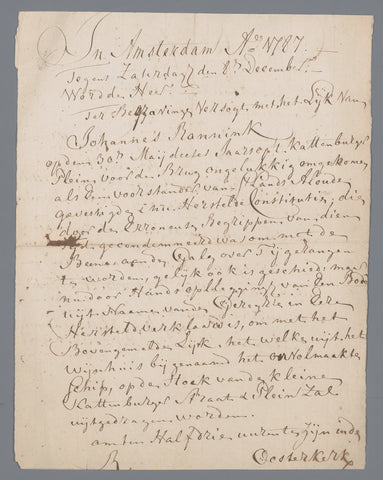 In Amsterdam Ao 1787.
Tegens Zaterdag den 8n December
Word de Heer
Ter Begraving Versogt, met het Lijk van
Johannes Rannink
op den 30n Maij deeses Jaars op 't Kattenburger
Plein, voor de Brug ongelukkig omgekomen
als Een voorstander van 's Lands Aloude
gevestigde en de Herstelde Constitutie, die
door de Erroneuse Begrippen van dien
Tijd gecondemneerd was om met de
Beene aan de Galg over Tij gehangen
te worden, gelijk ook is geschied, maar
nu door Hands oplegging van Een Bode
uijt Naame van de Geregte in Eere
Hersteld verklaard is, om met het
Bovengemelde Lijk, het welke uijt het
wijnhuis bij genaamd het onVolmaakte
Schip, op de Hoek van de kleine
Kattenburger Straat & Plein Zal
uijtgedragen worden.
am ten Half drie uuren te zijn in de
Oosterkerk